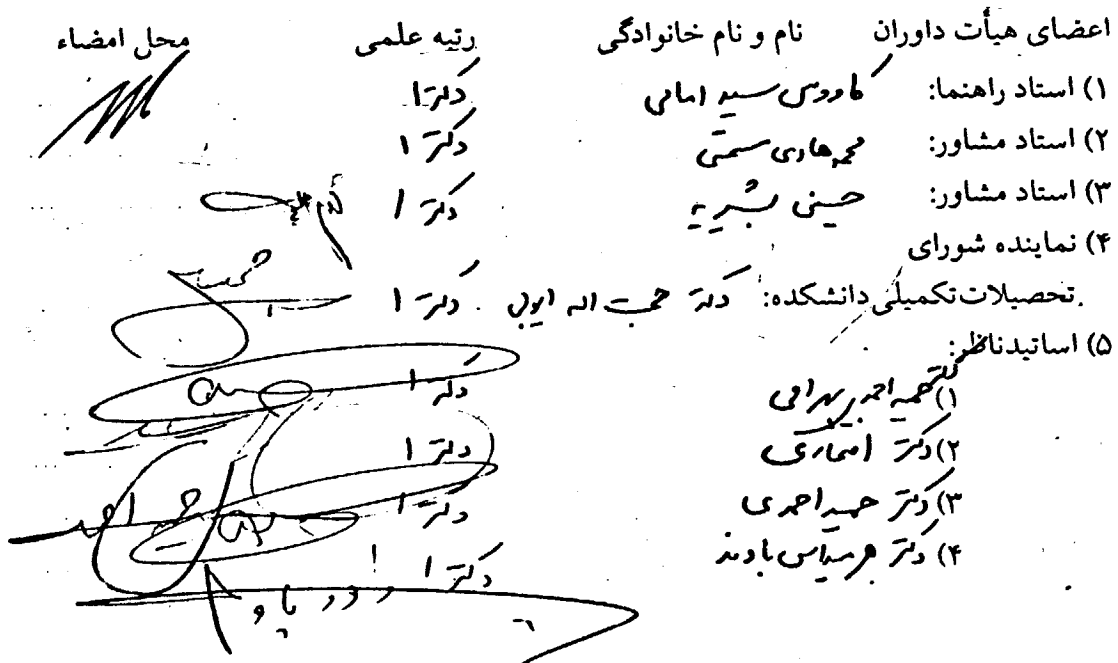 اعضای هیأت داوران نام و نام خانوادگی رتبه علمی محل امضاء
۱) استاد راهنما: کاووس سید امامی دکترا
۲) استاد مشاور: محمدهادی سمتی دکترا
۳) استاد مشاور: حسین بشیریه دکترا
۴) نماینده شورای
تحصیلات تکمیلی دانشکده: دکتر حجت اله ایوبی دکترا
۵) اساتید ناظر:
۱) دکتر احمد بهرامی دکترا
۲) دکتر دکترا
۳) دکتر حمید احمدی دکترا
۴) دکتر هرمیداس باوند دکترا